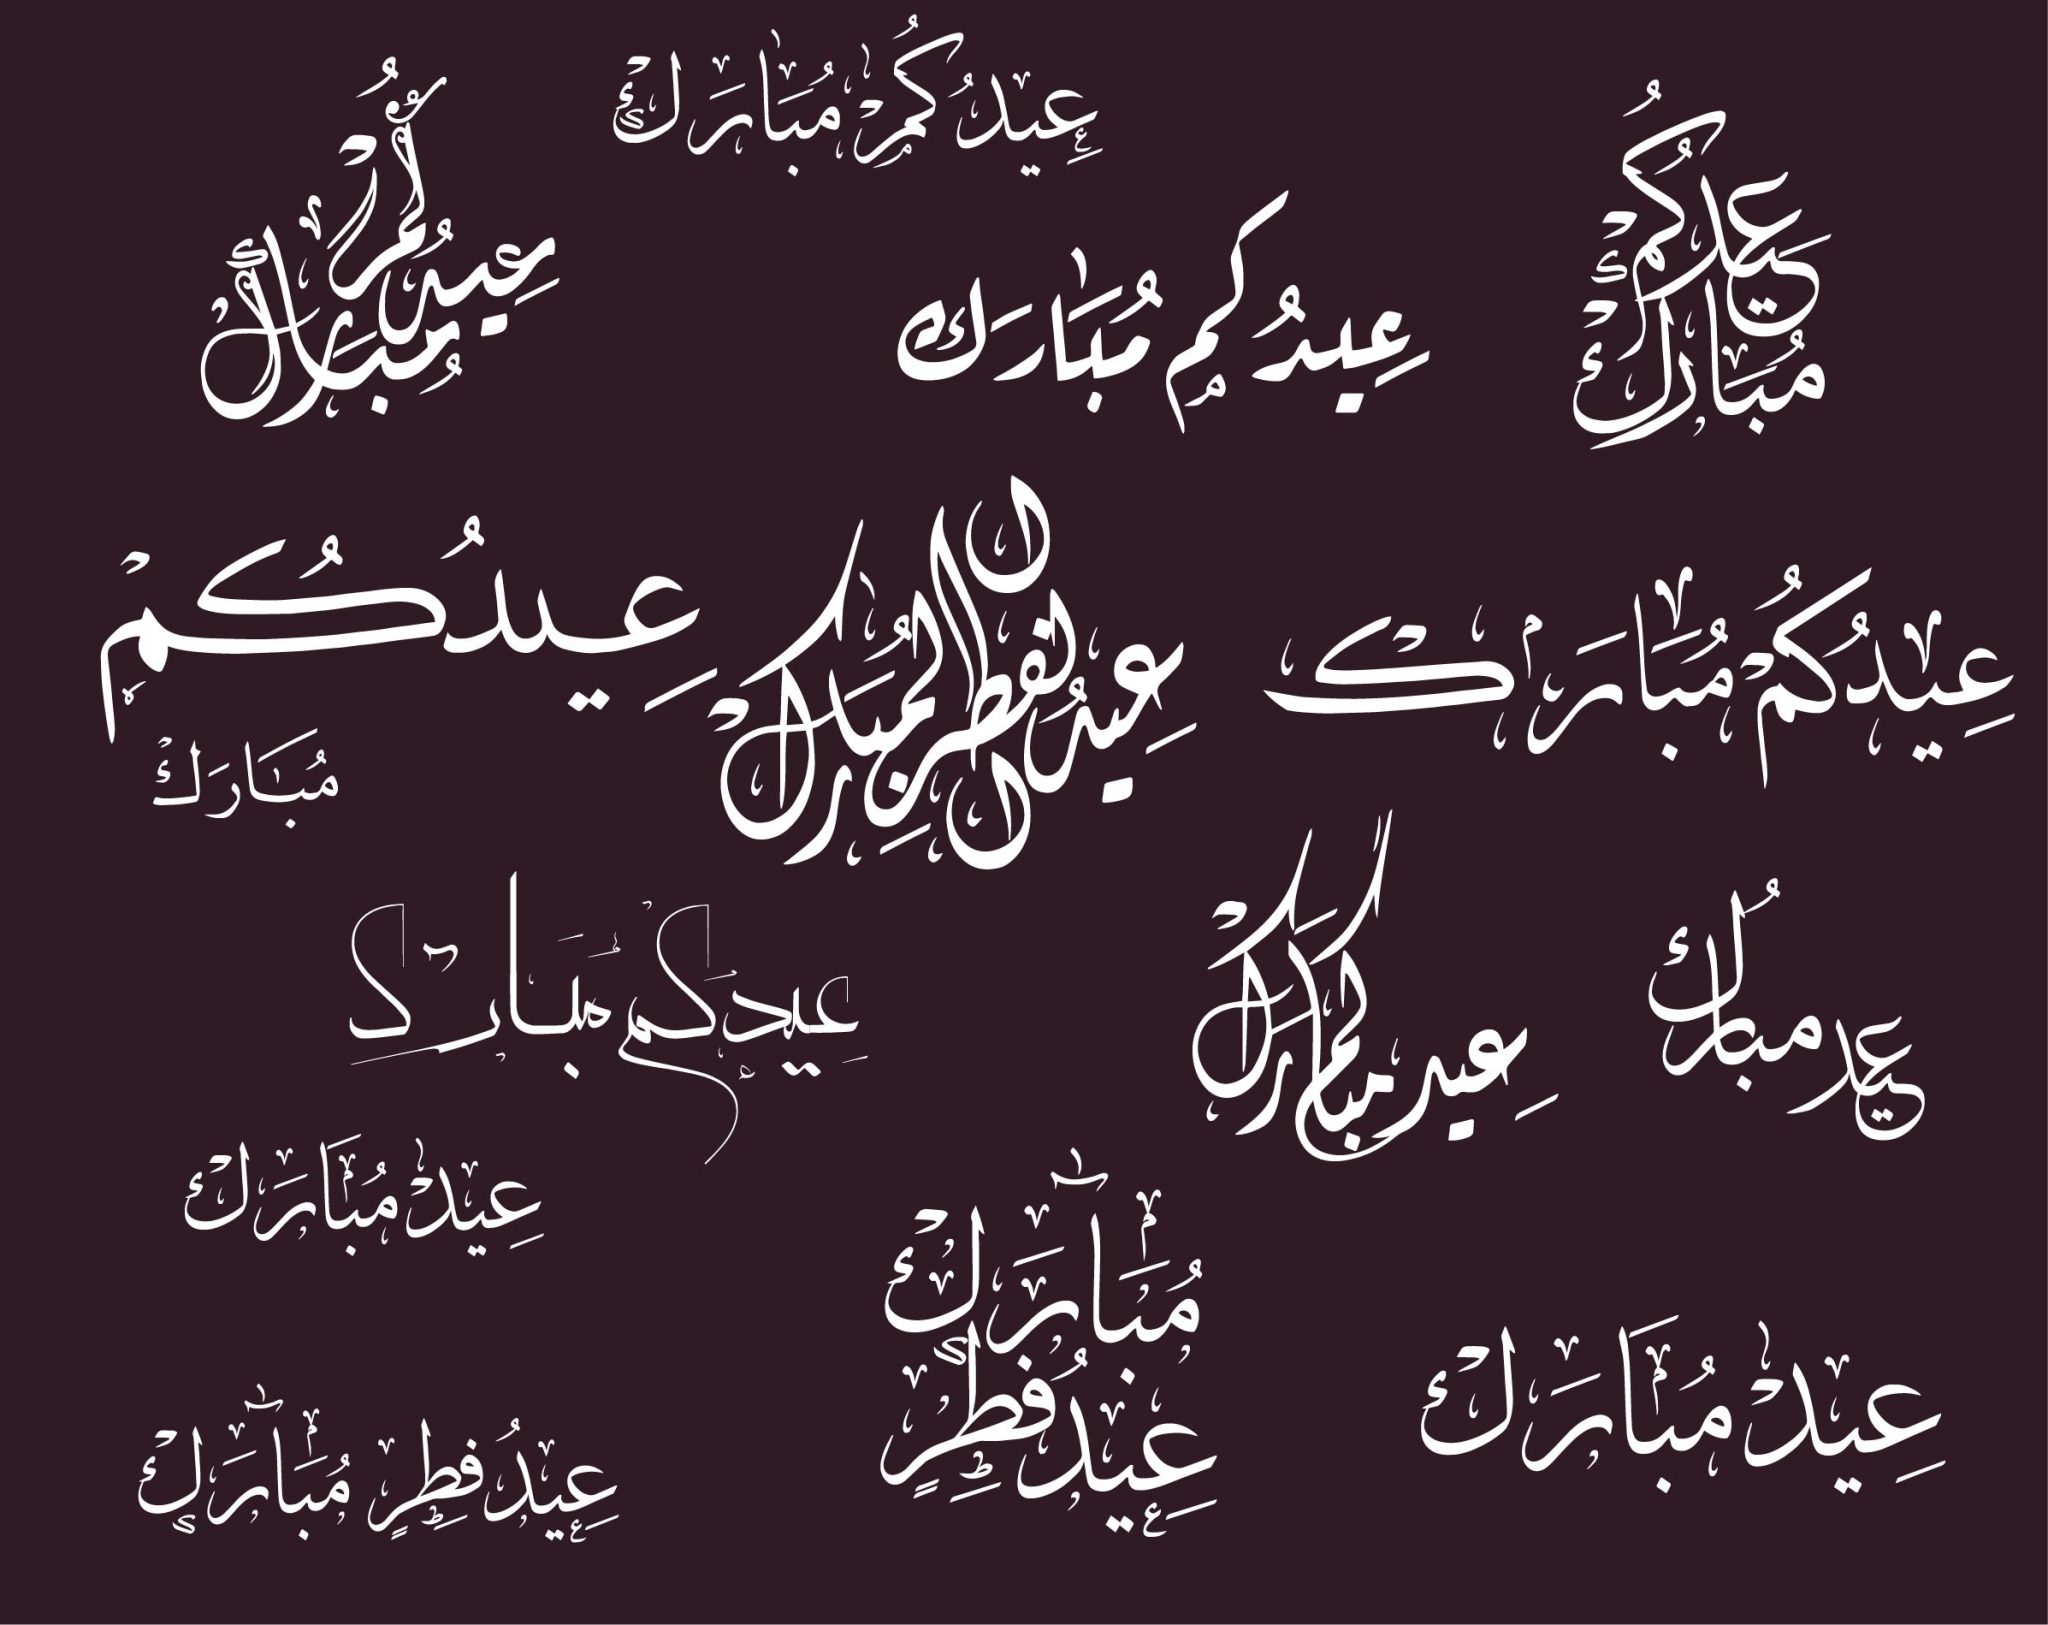 عِيدُكُمْ مُبَارَكٌ
عِيدُكُمْ مُبَارَكٌ
عِيدُكُمْ مُبَارَكٌ
عِيدُكُم مُبَارَك
عِيدُكُمْ
مُبَارَكٌ
عِيدُ الفِطْرِ المُبَارَكْ
عِيدُكُمْ مُبَارَكْ
عِيدكم مُبَارَكْ
عِيد مبارَكْ
عيد مباركٌ
عِيدْ مُبَارَكْ
مُبَارَكْ
عِيدُ فِطْرٍ
عِيدْ مُبَارَكْ
عِيدُ فِطْرٍ مُبَارَكْ